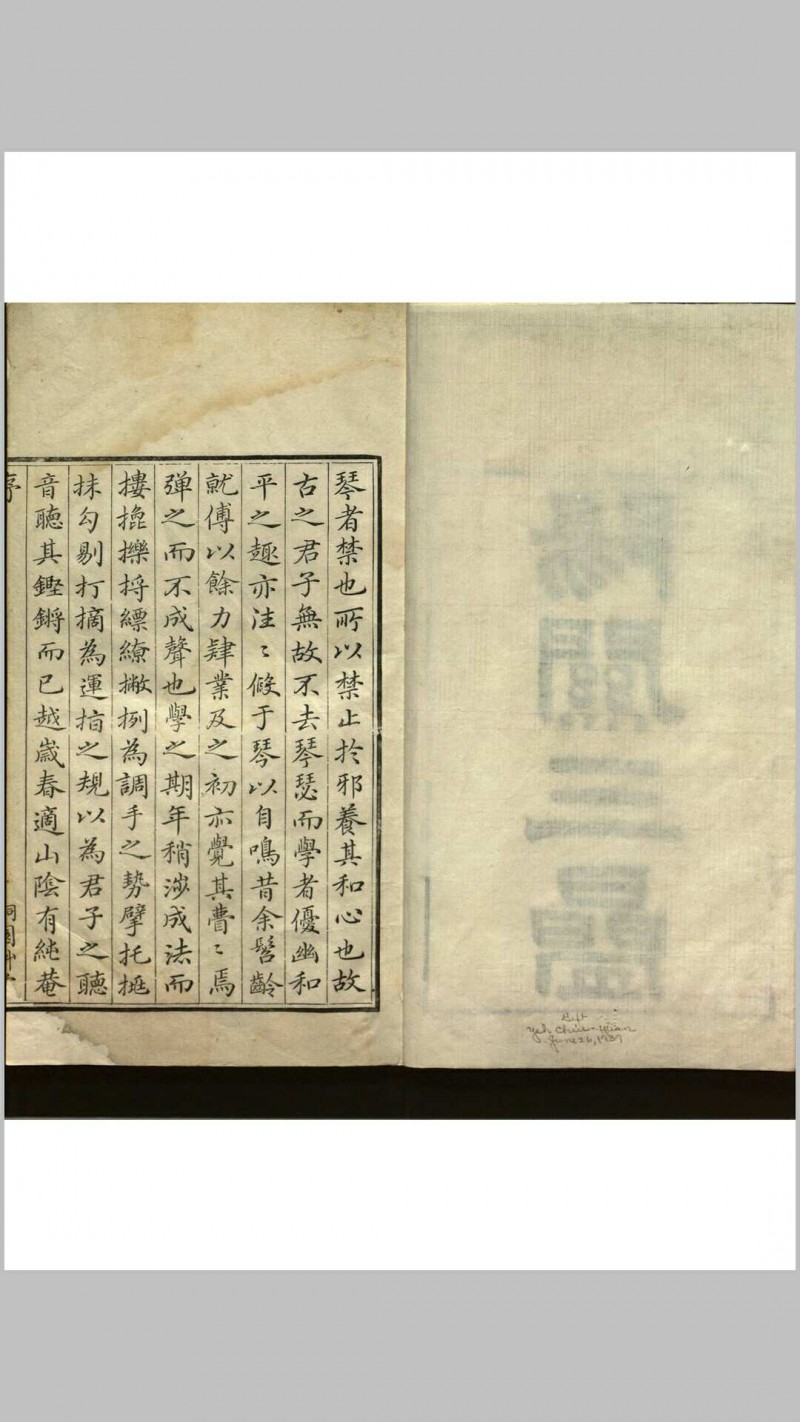 琴者禁也所以禁止於邪養其和心也故
古之君子無故不去琴瑟而學者優幽和
平之趣亦往〻倐于琴以自鳴昔余髫齡
就傅以餘力肄業及之初亦覺其瞢〻焉
弹之而不成聲也學之期年稍涉成法而
摟㩓擽捋縹繚撇挒為調手之勢擘托挑
抹勾剔打摘為運指之規以為君子之聽
音聽其鏗鏘而已越嵗春適山陰有純菴
序
陽關三疊
Gift
Yeh Chiu-Yuan
June 26, 1937